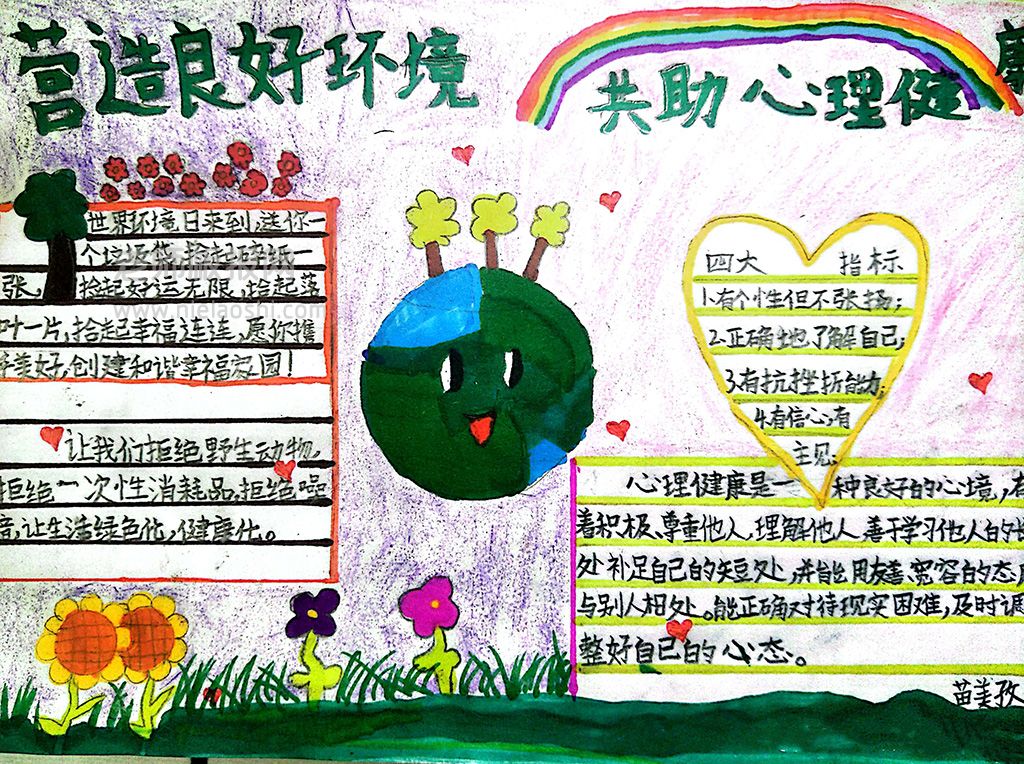 营造良好环境
共助心理健康
世界环境日来到,送你一
个垃圾袋,捡起碎纸一
张,捡起好运无限,拾起落
叶一片,拾起幸福连连,愿你携
手美好,创建和谐幸福家园!
让我们拒绝野生动物,
拒绝一次性消耗品,拒绝噪
音,让生活绿色化,健康化。
www.nielaoshi.com
四大 指标
1.有个性但不张扬;
2.正确地了解自己;
3.有抗挫折能力;
4.有信心,有
主见;
心理健康是一种良好的心境,有
善积极、尊重他人,理解他人善于学习他人的长
处补足自己的短处,并能用友善、宽容的态度
与别人相处。能正确对待现实困难,及时调
整好自己的心态。
苗美孜